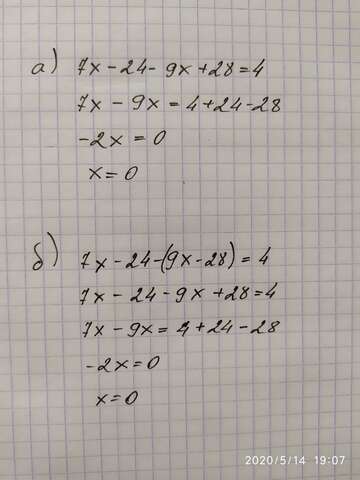 а) 7x - 24 - 9x + 28 = 4
7x - 9x = 4 + 24 - 28
-2x = 0
x = 0
б) 7x - 24 - (9x - 28) = 4
7x - 24 - 9x + 28 = 4
7x - 9x = 4 + 24 - 28
-2x = 0
x = 0
2020/5/14 19:07